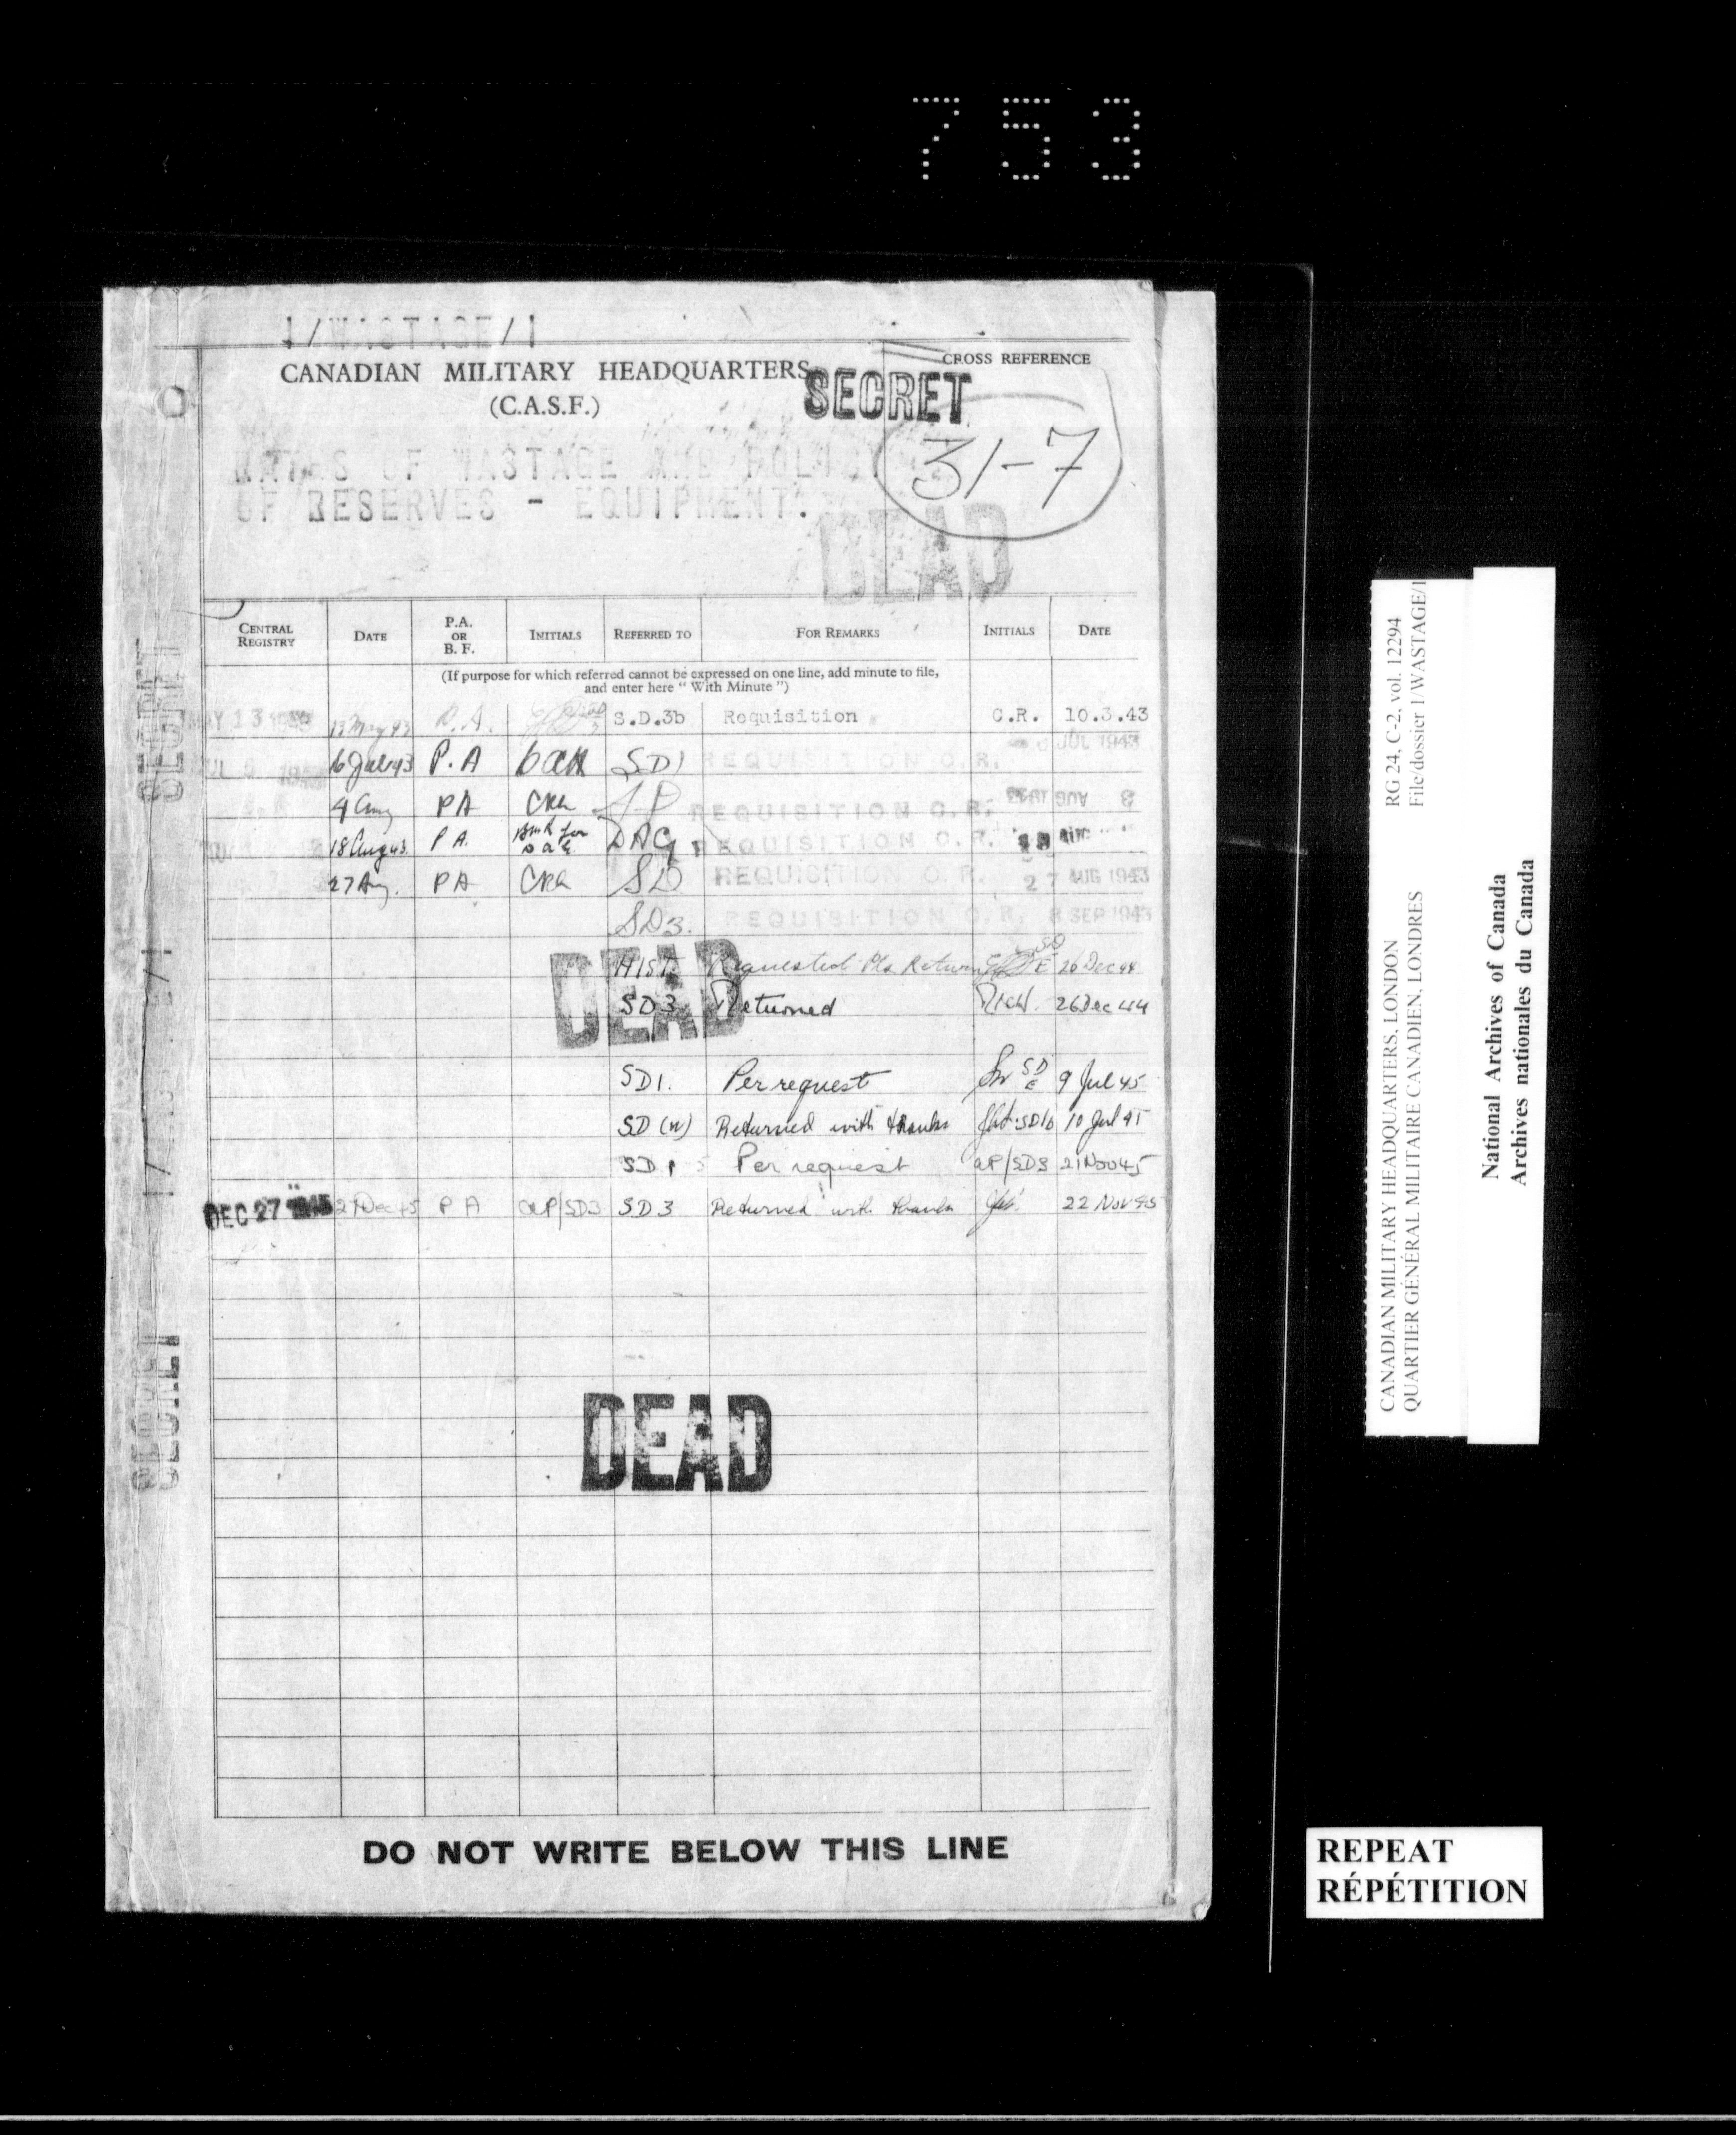 753
1/WASTAGE/1
CANADIAN MILITARY HEADQUARTERS
(C.A.S.F.)
SECRET
CROSS REFERENCE
31-7
RATES OF WASTAGE AND POLICY
OF RESERVES - EQUIPMENT.
DEAD
CENTRAL REGISTRY DATE P.A. OR B. F. INITIALS REFERRED TO FOR REMARKS INITIALS DATE
(If purpose for which referred cannot be expressed on one line, add minute to file,
and enter here " With Minute ")
MAY 13 1943 13 May 43 P.A. S.D.3b Requisition C.R. 10.3.43
JUL 6 1943 16 July 43 P.A SD1 REQUISITION C.R. 6 JUL 1943
4 Aug PA CRA REQUISITION C.R. 3 AUG 1943
18 Aug 43 PA. DAG REQUISITION C.R. 18 AUG
27 Aug. PA CRA SD REQUISITION C.R. 27 AUG 1943
SD3. REQUISITION C.R. 8 SEP 1943
HIST. Requested Pls Return SD E 26 Dec 44
SD 3 Returned 26 Dec 44
DEAD
SD1. Per request SD E 9 Jul 45
SD (w) Returned with thanks SD1b 10 Jul 45
SD 1 Per request aP/SD3 21 Nov 45
DEC 27 1945 27 Dec 45 PA aP/SD3 SD 3 Returned with thanks 22 Nov 45
DEAD
DO NOT WRITE BELOW THIS LINE
SECRET
SECRET
RG 24, C-2, vol. 12294
File/dossier 1/WASTAGE/1
CANADIAN MILITARY HEADQUARTERS, LONDON
QUARTIER GÉNÉRAL MILITAIRE CANADIEN, LONDRES
National Archives of Canada
Archives nationales du Canada
REPEAT
RÉPÉTITION